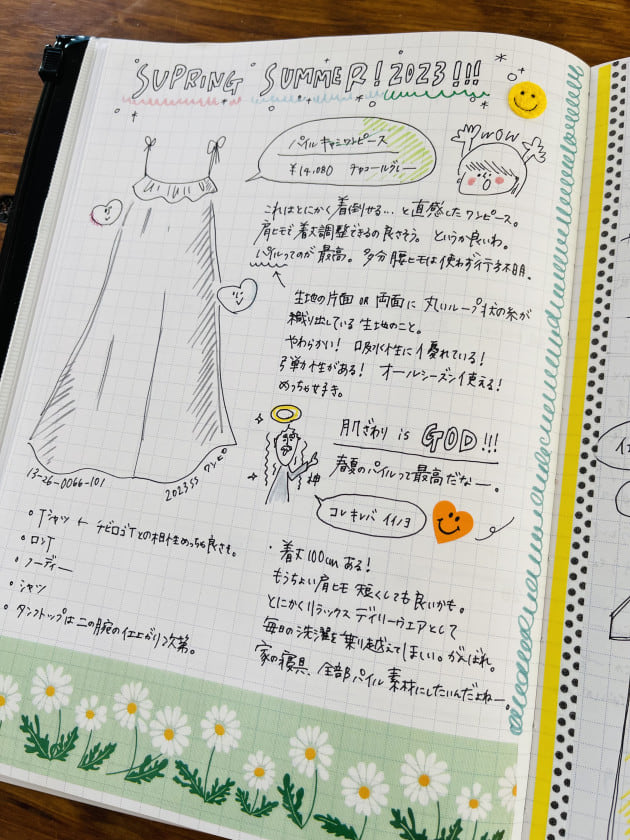 SUPRING SUMMER! 2023!!!
パイルキャミワンピース
¥14,080 チャコールグレー
WOW
これはとにかく着倒せる…と直感したワンピース。
肩ヒモで着丈調整できるの良さそう。というか良いわ。
パイルってのが最高。多分腰ヒモは使わず行手不明。
生地の片面 OR 両面に 丸いループ状の糸が
織り出している生地のこと。
やわらかい! 吸水性に優れている!
弾力性がある! オールシーズン使える!
めっちゃすき。
肌ざわり is GOD!!!
春夏のパイルって最高だなー。
神
コレキレバイイノヨ
13-26-0066-101
2023SS ワンピ
・Tシャツ ← チビロゴTとの相性めっちゃ良さそ。
・ロンT
・フーディー
・シャツ
・タンクトップは二の腕の仕上がり次第。
・着丈100cmある!
もうちょい肩ヒモ短くしても良いかも。
とにかくリラックスデイリーウェアとして
毎日の洗濯を乗り越えてほしい。がんばれ。
家の寝具、全部パイル素材にしたいんだよねー。